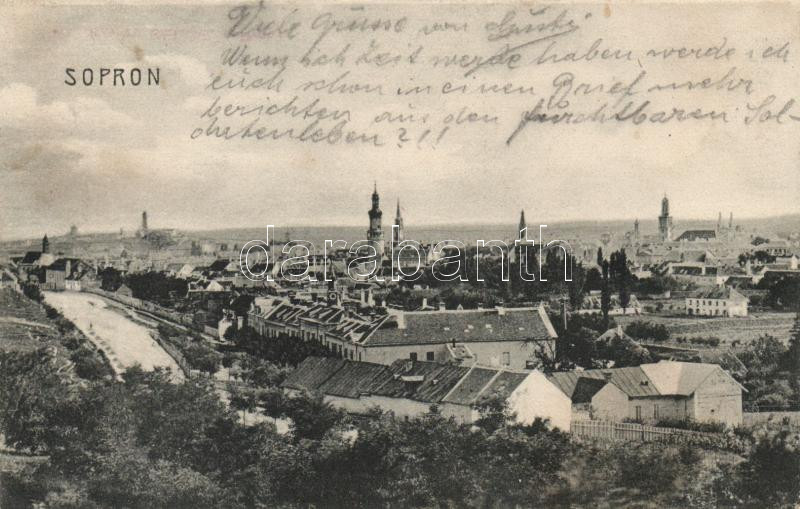 Viele Grüsse von Gusti
SOPRON
Wenn ich Zeit werde haben, werde ich
euch schon in einen Brief mehr
berichten aus den furchtbaren Sol-
datenleben?!!
darabanth